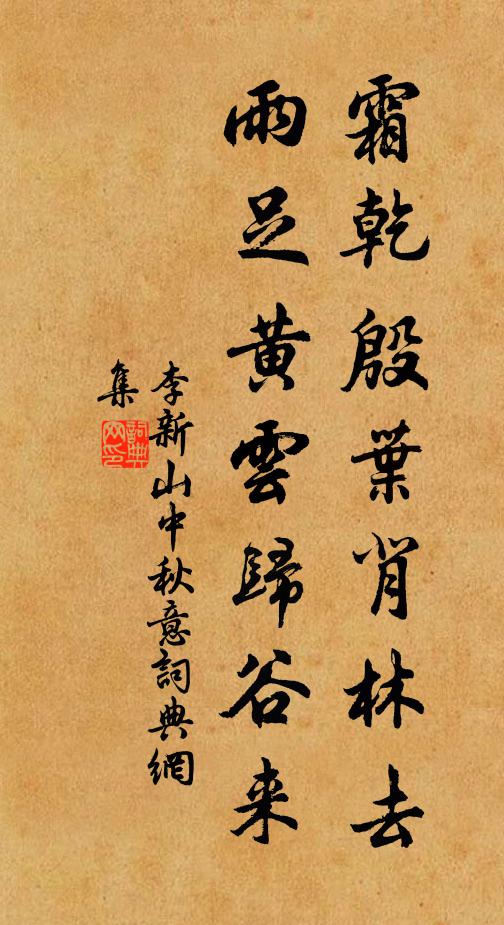 霜乾殷葉背林去
雨足黄雲歸谷来
李新山中秋意詞典網
集
詞典
网印